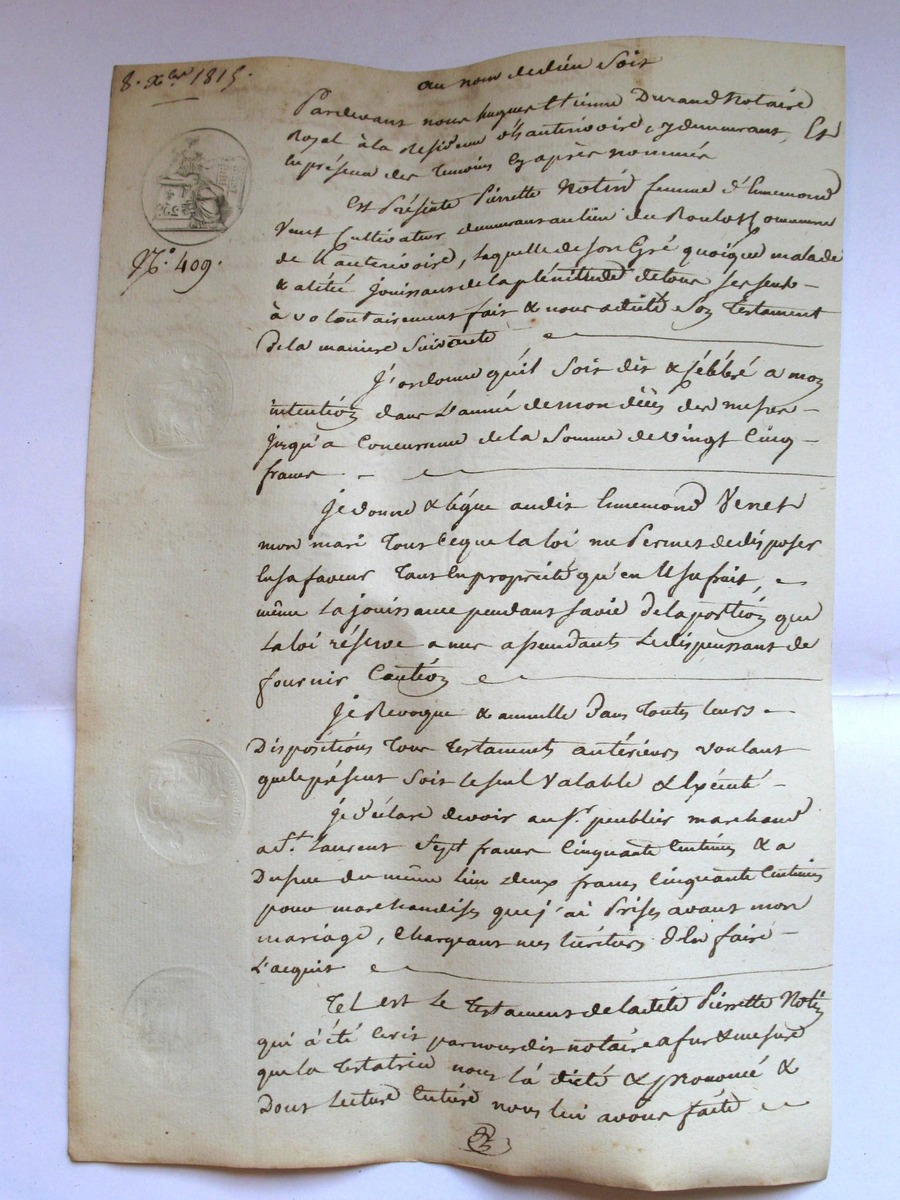 8. Xbre 1815.
au nom de dieu soit
Pardevant nous hugues Etienne Durand Notaire
Royal à la Residence d'hauterivoire, y demeurant, Et
En présence des temoins cy après nommés
Est Présente Pierrette Notin femme d'Ennemond
Venet Cultivateur demeurant au lieu du Commune
de hauterivoire, laquelle de son Gré quoique malade
& alitée jouissant de la plénitude de tous ses sens –
à volontairement fait & nous a dicté Son Testament
de la maniere suivante
N.° 409.
J'ordonne qu'il soit dit & célébré a mon
intention dans L'année de mon décès des messes –
jusqu'a Concurrence de la Somme de vingt Cinq –
francs –
Je donne & légue audit Ennemond Venet
mon mari Tout ce que la loi me Permet de disposer
En sa faveur Tant En propriété qu'en Usufruit,
même La jouissance pendant sa vie de la portion que
La loi réserve a mes assendants Le dispensant de
fournir Caution
Je Revoque & annulle Dans Toutes leurs
Dispositions Tous Testaments antérieurs voulant
que le présent soit le seul Valable & Exécuté –
Je déclare devoir au Sr. peublier marchand
a St. Laurent Sept francs Cinquante Centimes & a
du même lieu deux francs Cinquante Centimes
pour marchandises que j'ai Prises avant mon
mariage, Chargeant mes héritiers d'En faire –
L'acquit
Tel est Le Testament de ladite Pierrette Notin
qui à été Ecrit par nous dit notaire a fur & mesure
que la Testatrice nous l'a dicté & prononcé &
Dont Lecture Entiere nous lui avons faite